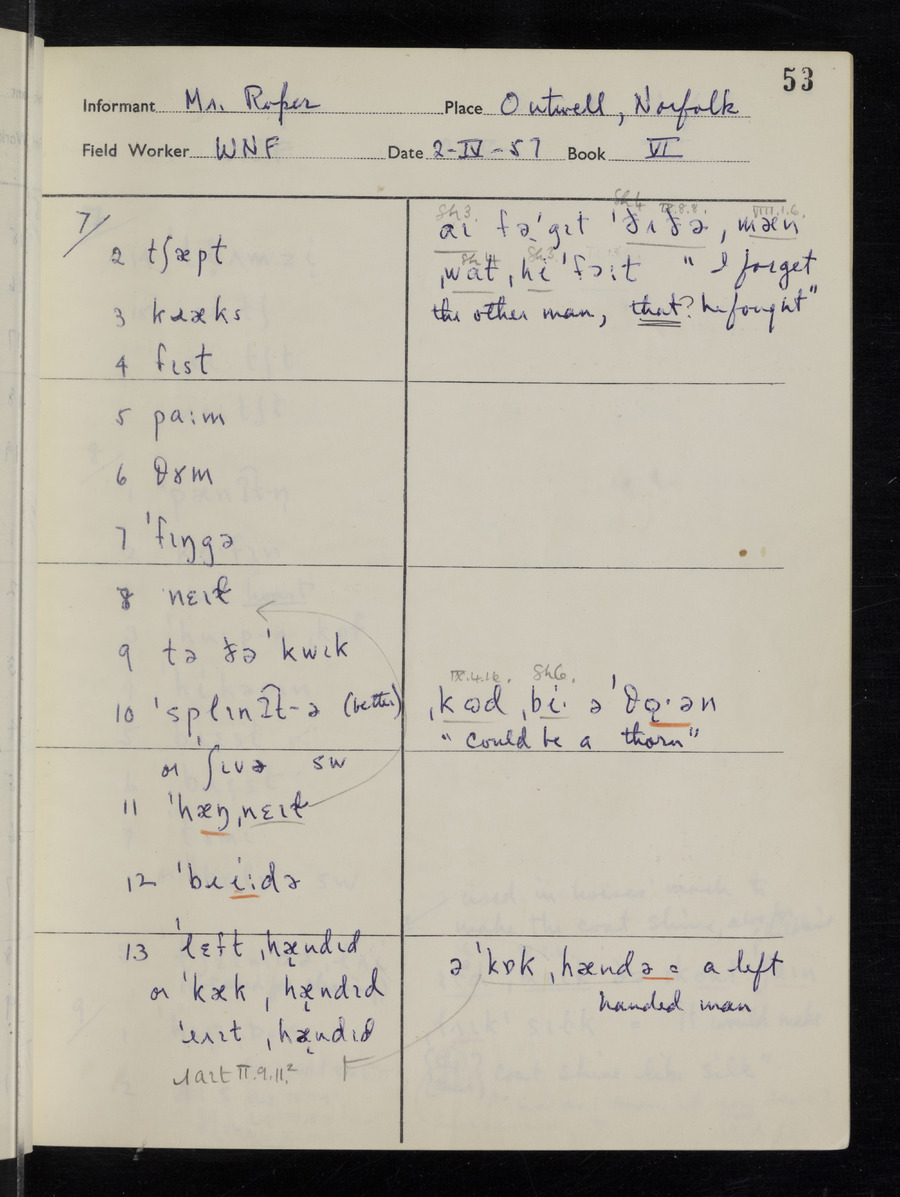 53
Informant Mr. Roper Place Outwell, Norfolk
Field Worker WNF Date 2-IV-57 Book VI
7/
2 tʃæpt
3 kɹæks
4 fɪst
5 pa:m
6 θɤm
7 ˈfɪŋgə
8 nɛɪɫ
9 tə ðə ˈkwɪk
10 ˈsplɪnʔ͡t-ə (better)
or ˈʃɪvə SW
11 ˈhæŋˌnɛɪɫ
12 ˈbɹi:də
13 ˈlɛft ˌhændɪd
or ˈkæk ˌhændɪd
ˌhændɪd
II.9.11.²
Sh3. Sh4 IX.8.8. VIII.1.6.
aɪ fəˈgɪt ˈðɪðə, mæn
Sh4 Sh3
ˌwat ˌhi ˈfɔ:t " I forget
the other man, that? he fought"
IX.4.16. Sh6.
ˌkɷd ˌbi· ə ˈθɔ̨·ən
" could be a thorn"
ə ˈkɒk ˌhændə = a left
handed man